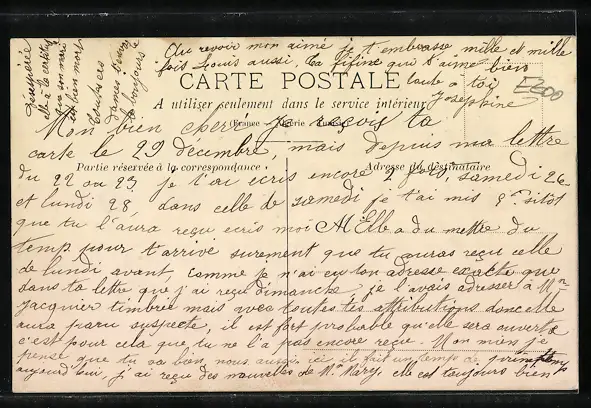 Au revoir mon aimé je t'embrasse mille et mille
fois Louis aussi, ta fifine qui t'aime bien
toute à toi
Joséphine
CARTE POSTALE
A utiliser seulement dans le service intérieur
(France — Algérie — Tunisie)
Partie réservée à la correspondance
Adresse du destinataire
E200
Mon bien cheri Je reçois ta
carte le 29 décembre, mais depuis ma lettre
du 22 au 23 je t'ai ecris encore samedi 26
et lundi 28, dans celle de samedi je t'ai mis sitot
que tu l'aura reçu ecris moi Elle a du mettre du
temp pour t'arrivé surement que tu auras reçu celle
de lundi avant, comme je n'ai eu ton adresse exacte que
dans ta lettre que j'ai reçu dimanche je l'avais adresser à
Jacquier timbrée mais avec toutes tes attributions donc elle
aura paru suspecte, il est fort probable qu'elle sera ouverte
c'est pour cela que tu ne l'a pas encore reçue. Mon mien je
pense que tu va bien, nous aussi ici il fait un temps de printemp
aujourd'hui, j'ai reçu des nouvelles de Mary, elle est toujours bien
désespérée
elle a la certitude
que son mari
est bien mort
toujours